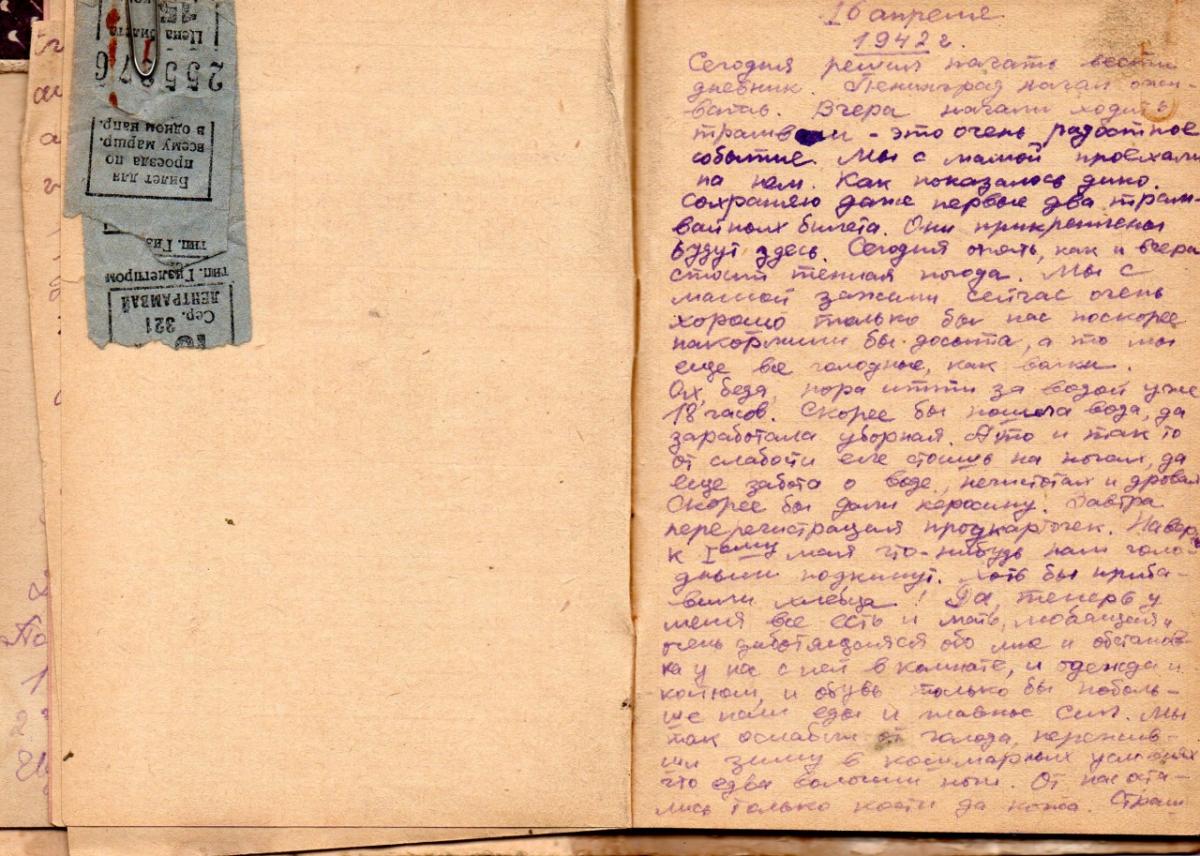 Цена билета
255 876
Билет для
проезда по
всему маршр.
в одном напр.
тип. Гиз
тип. Гизлегпром
ЛЕНТРАМВАЙ
Сер. 321
16 апреля
1942 г.
Сегодня решил начать вести
дневник. Ленинград начал ожи-
вать. Вчера начали ходить
трамваи - это очень радостное
событие. Мы с мамой проехали
на нем. Как показалось дико.
Сохраняю даже первые два трам-
вайных билета. Они прикреплены
будут здесь. Сегодня опять, как и вчера
стоит теплая погода. Мы с
мамой зажили сейчас очень
хорошо только бы нас поскорее
накормили бы досыта, а то мы
еще все голодные, как волки.
Ох, беда, пора итти за водой, уже
18 часов. Скорее бы пошла вода, да
заработала уборная. А то и так то
от слабости еле стоишь на ногах, да
еще забота о воде, нечистотах и дровах
Скорее бы дали керосину. Завтра
перерегистрация продкарточек. Навер
к Iому мая что-нибудь нам голо-
дным подкинут. Хоть бы приба-
вили хлебца! Да, теперь у
меня все есть и мать, любящая и
очень заботящаяся обо мне и обстанов-
ка у нас с ней в комнате, и одежда и
костюм, и обувь только бы поболь-
ше нам еды и главное сил. Мы
так ослабли от голода, пережив-
ши зиму в кошмарных условиях
что едва волочим ноги. От нас оста-
лись только кости да кожа. Страш